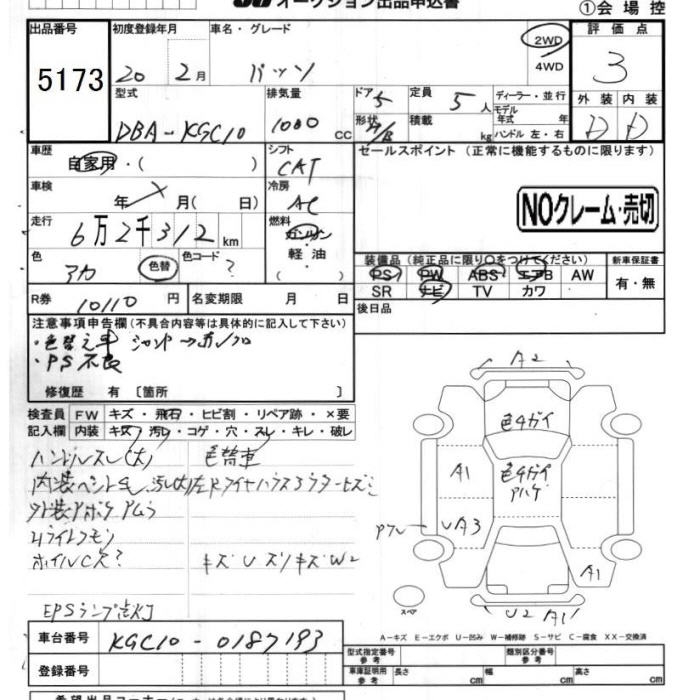 オークション出品申込書
①会場控
出品番号 初度登録年月 車名・グレード 2WD 評価点
5173 20 2月 パッソ 4WD 3
型式 排気量 ドア 5 定員 5人 ディーラー・並行 外装 内装
DBA-KGC10 1000 cc 形状 H/B 積載 kg モデル年式 年 ハンドル 左・右 D D
車歴 自家用・( ) シフト CAT セールスポイント (正常に機能するものに限ります)
車検 年 月( 日) 冷房 AC NOクレーム・売切
走行 6万2千312km 燃料 ガソリン
色 アカ 色替 色コード ? 軽油 装備品(純正品に限り○をつけてください) 新車保証書
PS PW ABS エアB AW 有・無
R券 10110円 名変期限 月 日 SR ナビ TV カワ
注意事項申告欄(不具合内容等は具体的に記入して下さい) 後日品
・色替え車
・PS不良
修復歴 有 〔箇所 〕
検査員 FW キズ・飛石・ヒビ割・リペア跡・×要
記入欄 内装 キズ・汚レ・コゲ・穴・スレ・キレ・破レ
ハンドルスレ(大) 色替車
A2
色ムガイ
色ムガイ
アハゲ
A1
UA3
A1
ホイルCズ? キズUズリキズW2
スペア
U2 A1
EPSランプ点灯
A－キズ E－エクボ U－凹み W－補修跡 S－サビ C－腐食 XX－交換済
車台番号 KGC10-0187193
型式指定番号 参考 類別区分番号 参考
登録番号 車庫証明用 参考 長さ cm 幅 cm 高さ cm